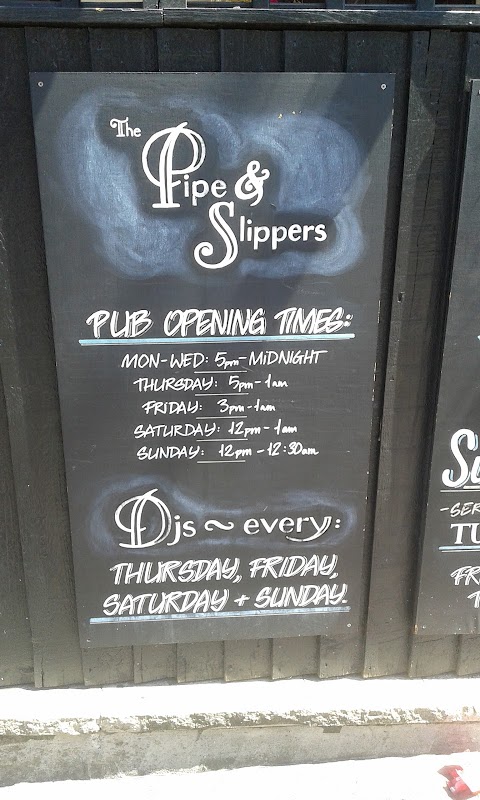 The
Pipe &
Slippers
PUB OPENING TIMES:
MON-WED: 5pm-MIDNIGHT
THURSDAY: 5pm-1am
FRIDAY: 3pm-1am
SATURDAY: 12pm-1am
SUNDAY: 12pm-12:30am
Djs ~ every:
THURSDAY, FRIDAY,
SATURDAY + SUNDAY.